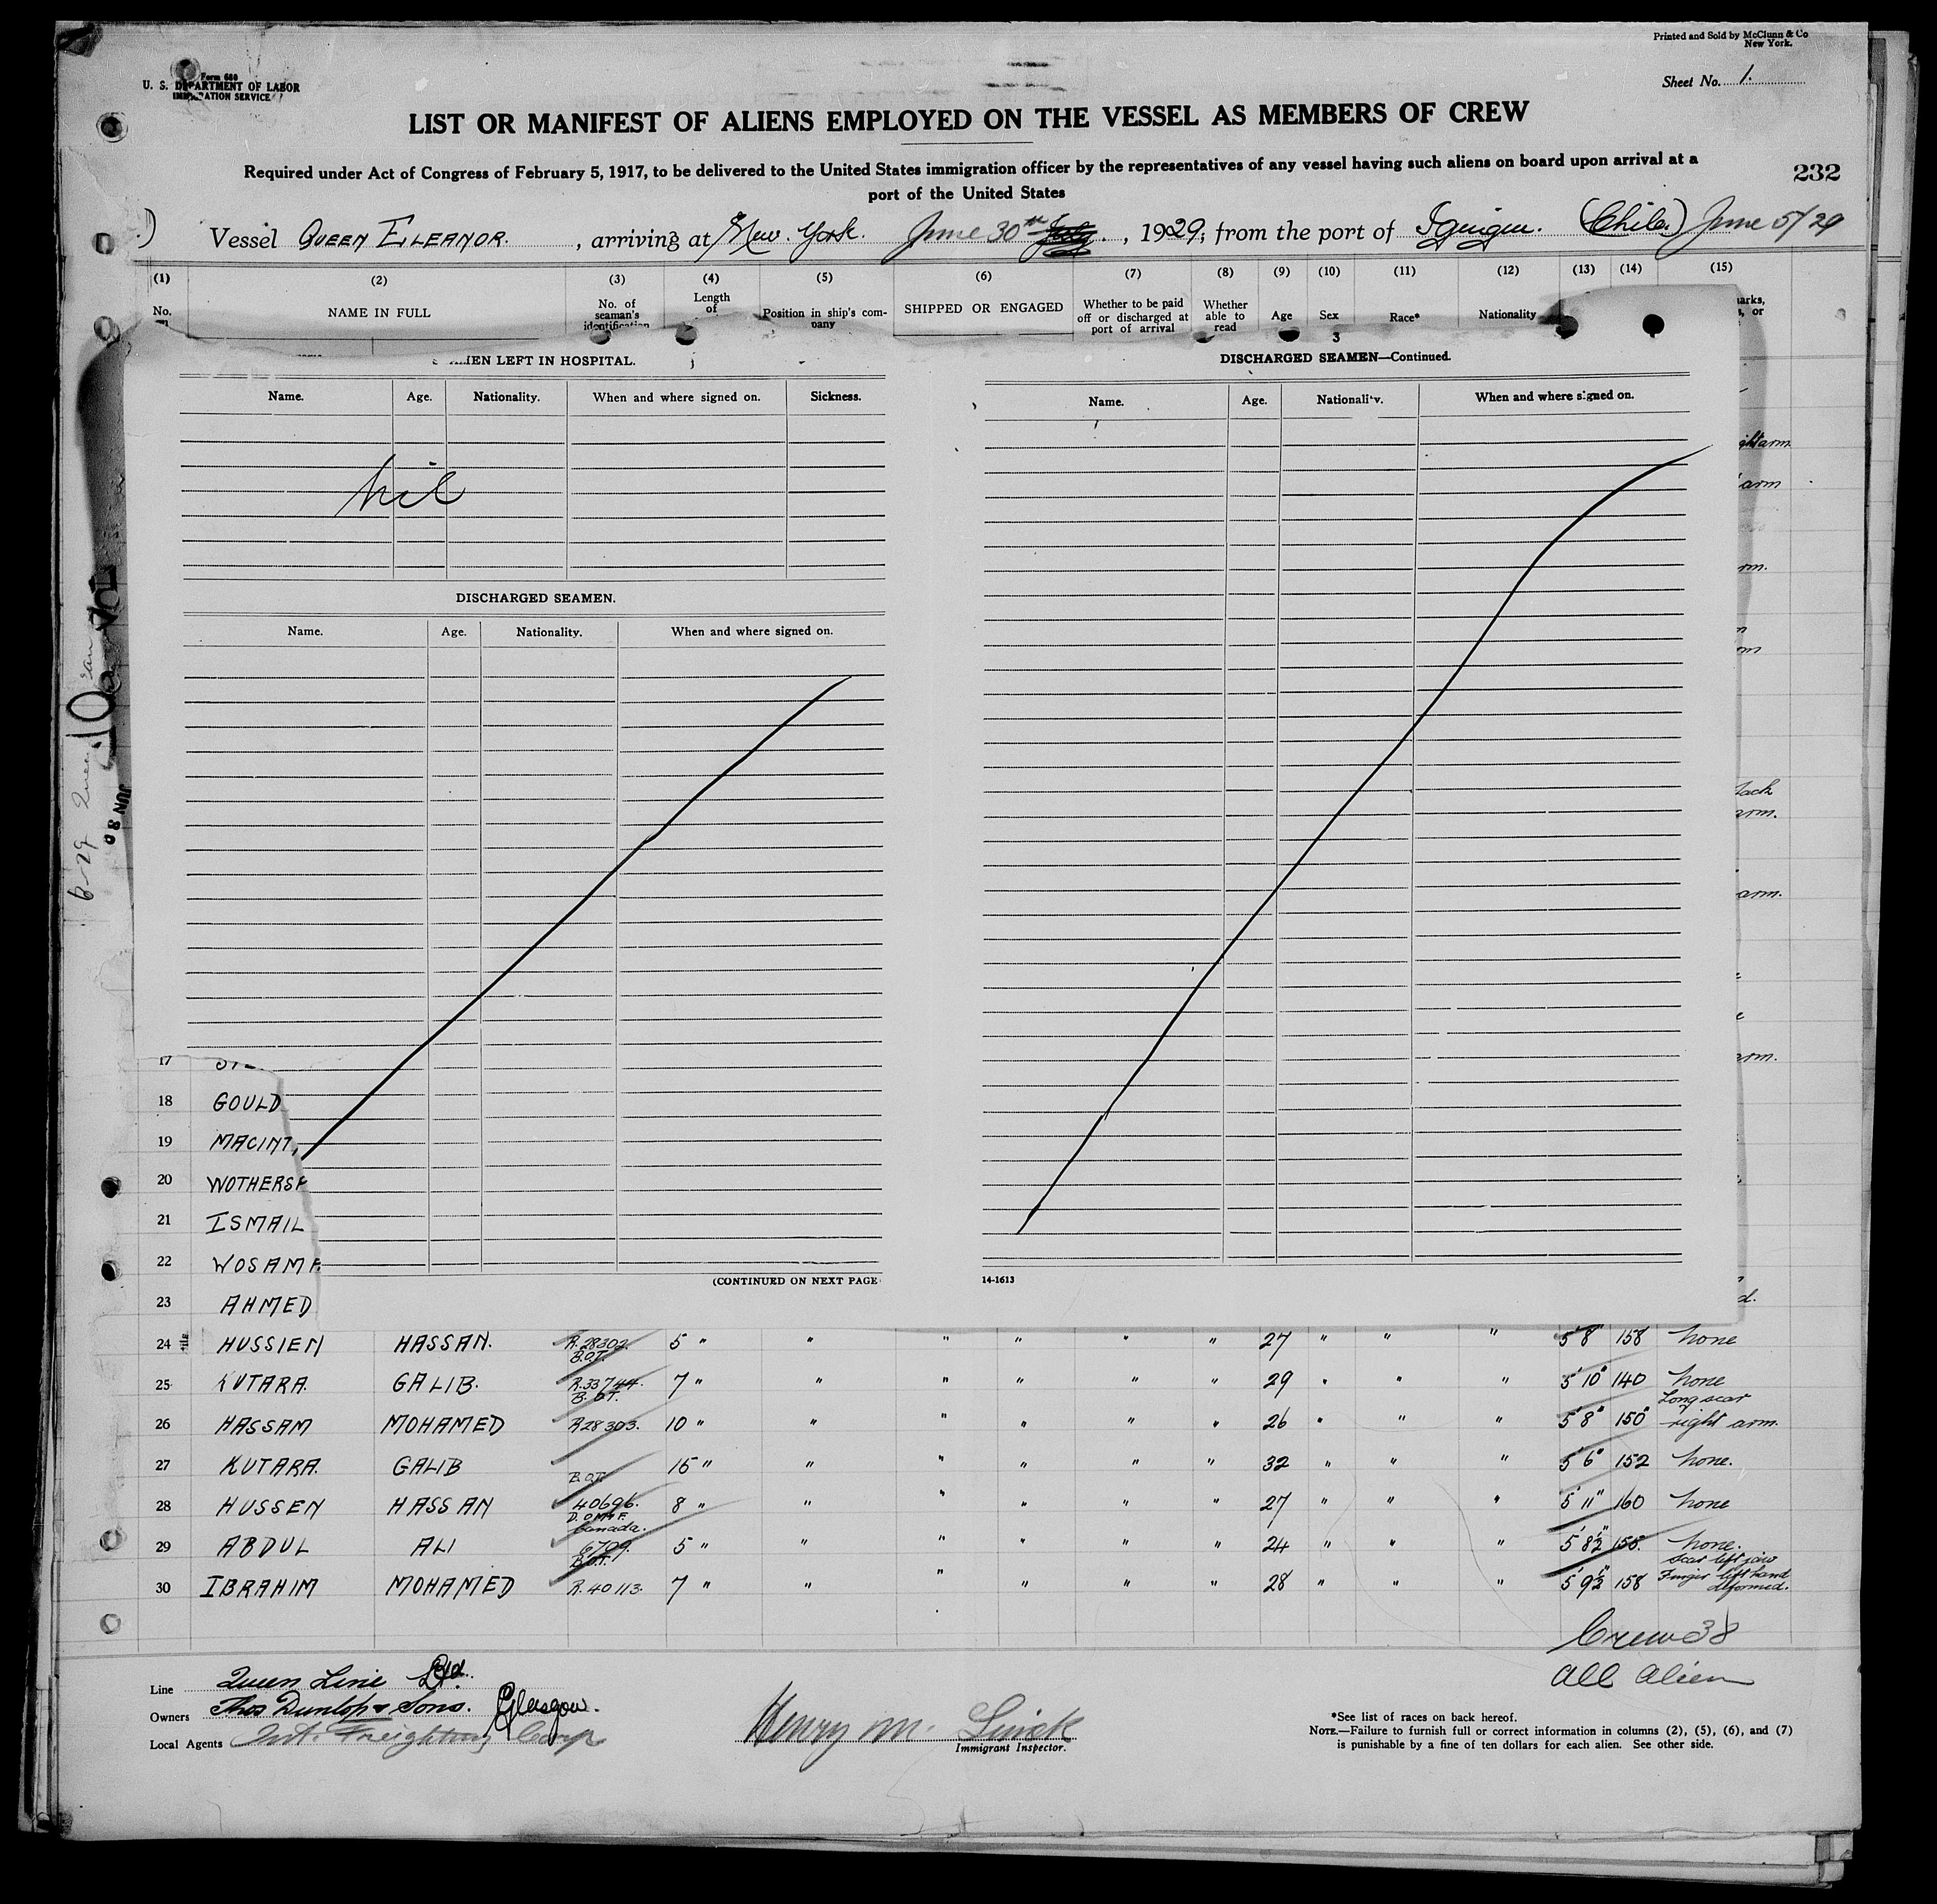 Printed and Sold by McClunn & Co
New York.
Form 680
U. S. DEPARTMENT OF LABOR
IMMIGRATION SERVICE
Sheet No. 1.
LIST OR MANIFEST OF ALIENS EMPLOYED ON THE VESSEL AS MEMBERS OF CREW
Required under Act of Congress of February 5, 1917, to be delivered to the United States immigration officer by the representatives of any vessel having such aliens on board upon arrival at a
port of the United States
232
Vessel QUEEN ELEANOR. , arriving at New York. June 30th , 1929, from the port of Iquique. (Chile.) June 5/29
(1) (2) (3) (4) (5) (6) (7) (8) (9) (10) (11) (12) (13) (14) (15)
No. NAME IN FULL No. of seaman's identification Length of Position in ship's company SHIPPED OR ENGAGED Whether to be paid off or discharged at port of arrival Whether able to read Age Sex Race* Nationality
3
MEN LEFT IN HOSPITAL.
Name. Age. Nationality. When and where signed on. Sickness.
nil
DISCHARGED SEAMEN.
Name. Age. Nationality. When and where signed on.
DISCHARGED SEAMEN—Continued.
Name. Age. Nationality. When and where signed on.
(CONTINUED ON NEXT PAGE
14-1613
17
18 GOULD
19 MACINT
20 WOTHERSP
21 ISMAIL
22 WOSAMA
23 AHMED
24 HUSSIEN HASSAN. R.28302. B.O.T. 5 " " " " " " 27 " " " 5'8" 158 none
25 KUTARA. GALIB. R.33744. B.O.T. 7 " " " " " " 29 " " " 5'10" 140 none
26 HASSAM MOHAMED R28303. 10 " " " " " " 26 " " " 5'8" 150 Long scar right arm.
27 KUTARA. GALIB B.O.T. 15 " " " " " " 32 " " " 5'6" 152 none.
28 HUSSEN HASSAN 40696. D. OF M F. Canada. 8 " " " " " " 27 " " " 5'11" 160 none
29 ABDUL ALI 6709. B.O.T. 5 " " " " " " 24 " " " 5'8½" 155. none.
30 IBRAHIM MOHAMED R.40113. 7 " " " " " " 28 " " " 5'9½" 158 Scar left jaw Finger left hand deformed.
Crew 38
All Alien
Line Queen Line Ltd.
Owners Thos Dunlop & Sons. Glasgow.
Local Agents Int. Freighting Corp
Henry M.
Immigrant Inspector.
*See list of races on back hereof.
NOTE.—Failure to furnish full or correct information in columns (2), (5), (6), and (7)
is punishable by a fine of ten dollars for each alien. See other side.